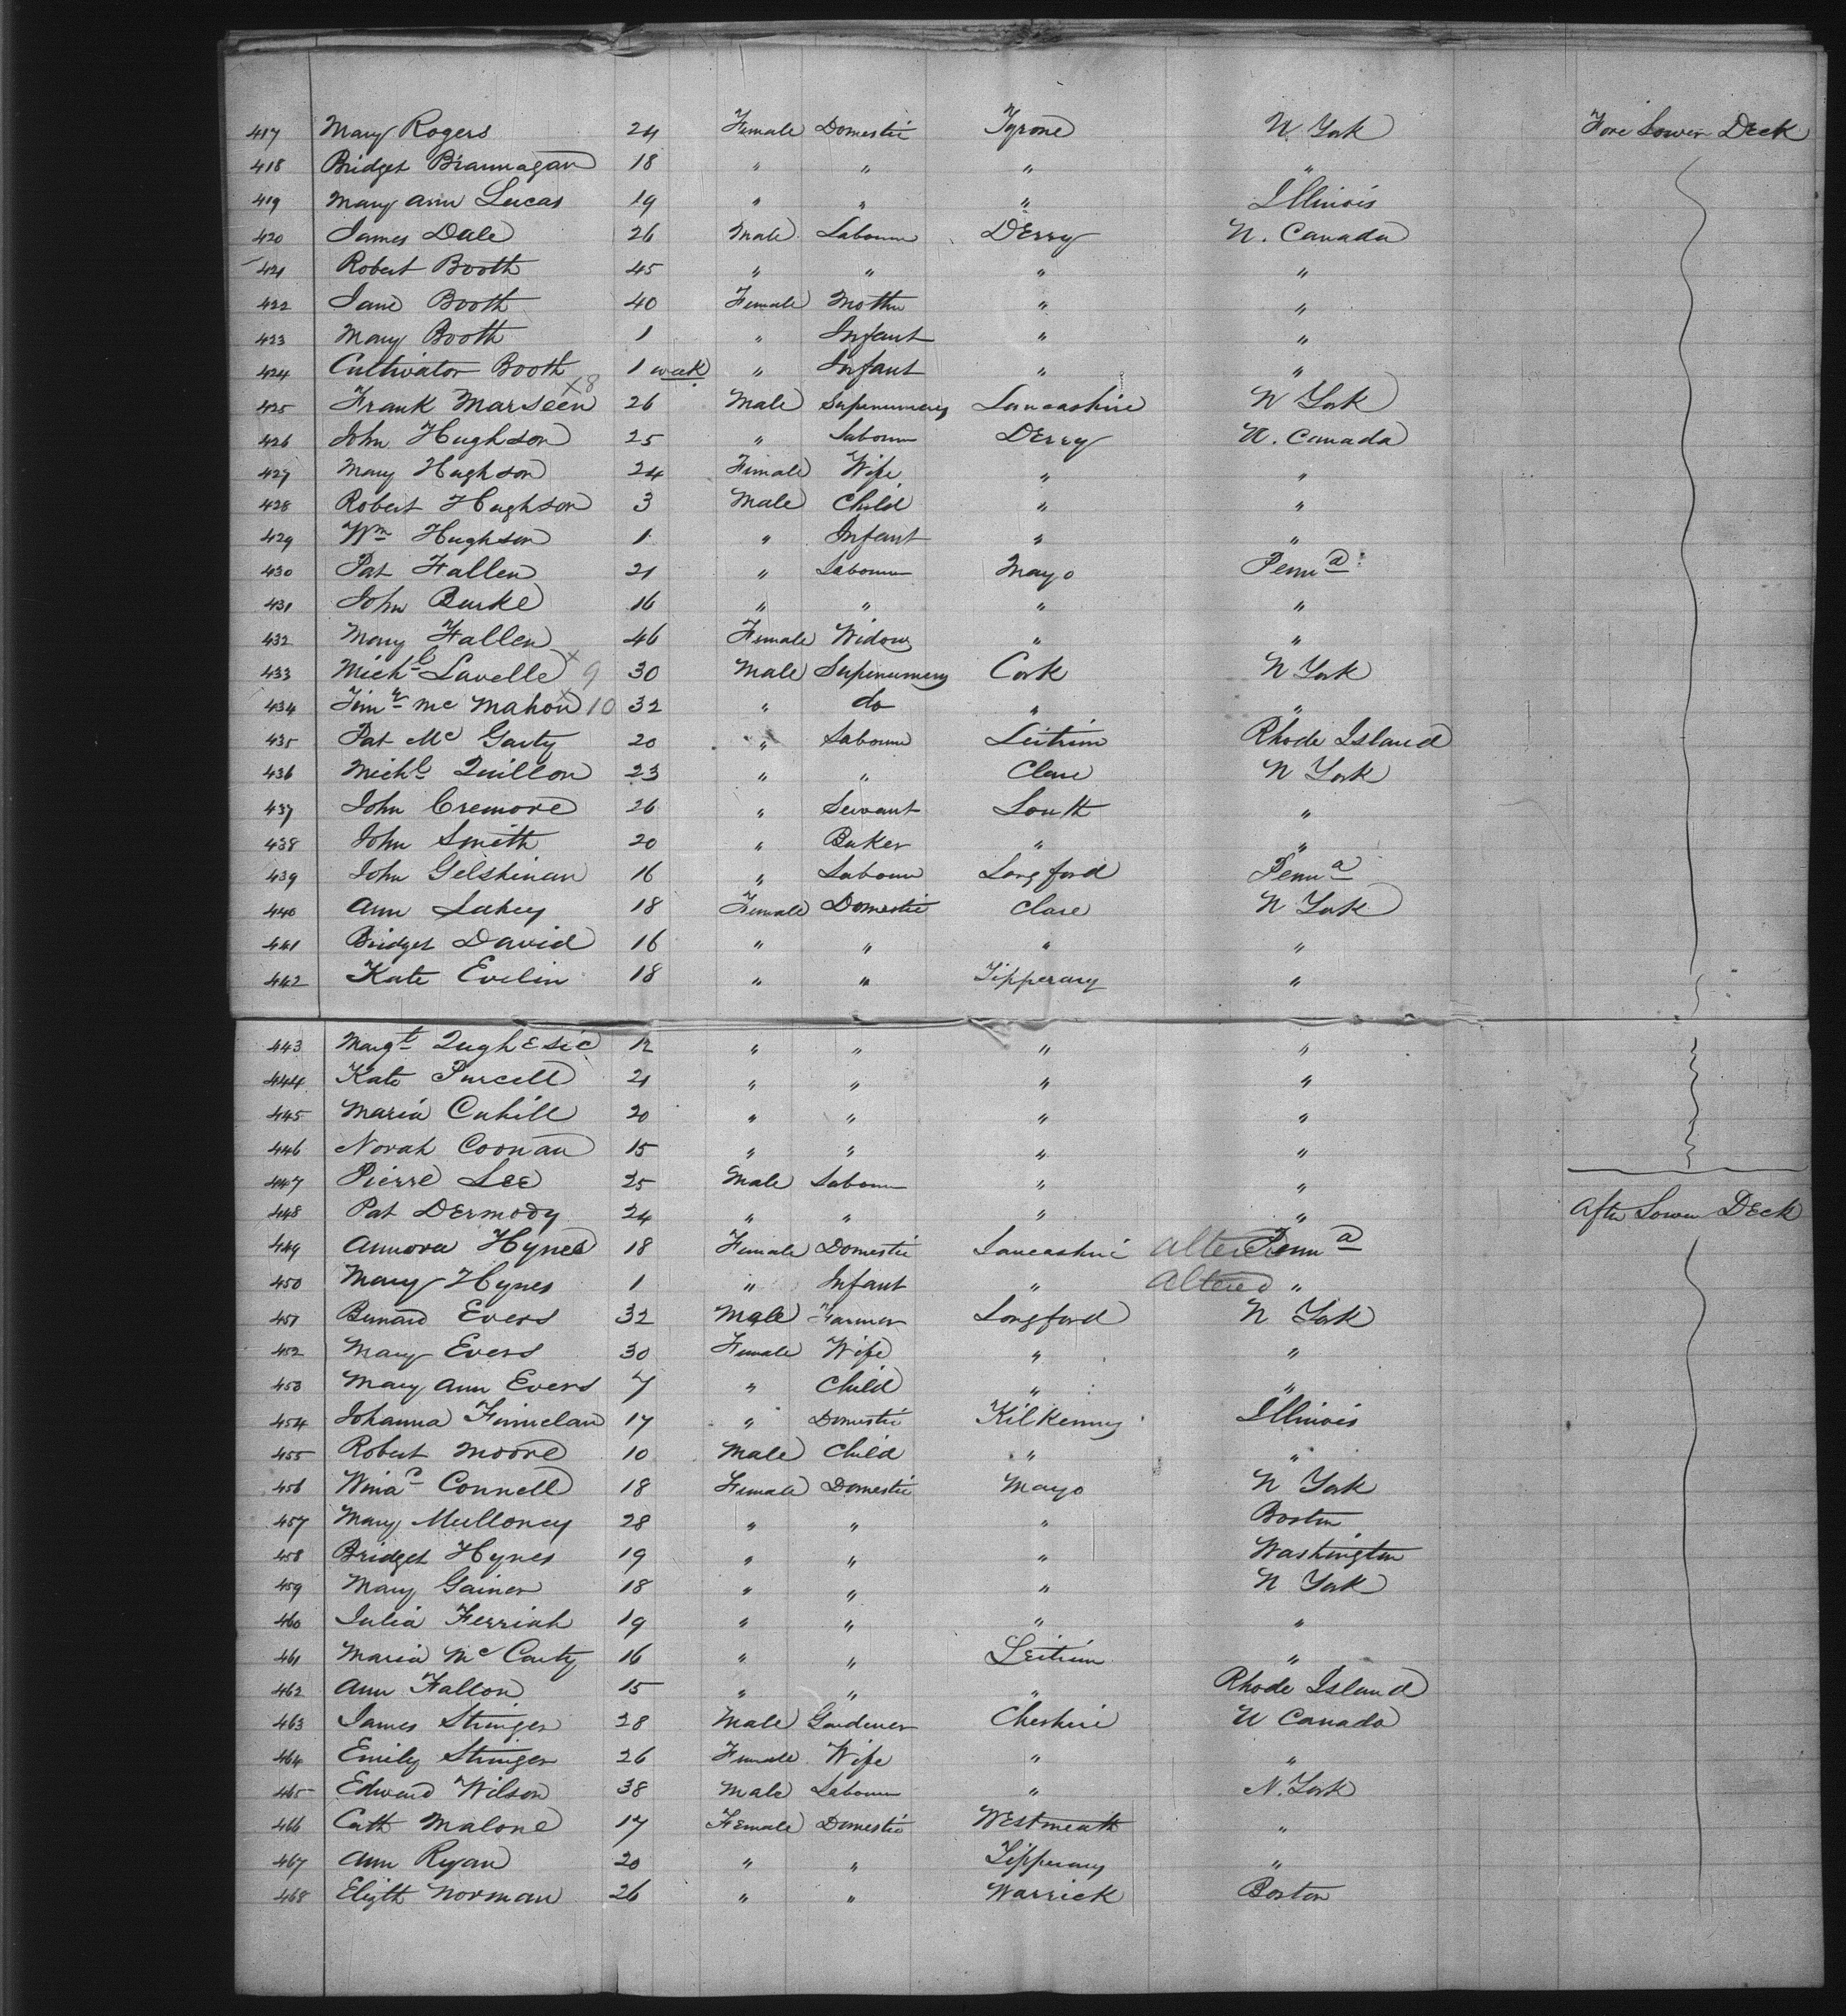 417 Mary Rogers 24 Female Domestic Tyrone N York Fore Lower Deck
418 Bridget Brannagan 18 " " " "
419 Mary Ann Lucas 19 " " " Illinois
420 James Dale 26 Male Labourer Derry U. Canada
421 Robert Booth 45 " " " "
422 Jane Booth 40 Female Mother " "
423 Mary Booth 1 " Infant " "
424 Cultivator Booth 1 week " Infant " "
425 Frank Marseen x8 26 Male Supernumery Lancashire N York
426 John Hughson 25 " Labourer Derry U. Canada
427 Mary Hughson 24 Female Wife " "
428 Robert Hughson 3 Male Child " "
429 Wm Hughson 1 " Infant " "
430 Pat Fallen 21 " Labourer Mayo Penna
431 John Burke 16 " " " "
432 Mary Fallen 46 Female Widow " "
433 Michl Lavelle x 9 30 Male Supernumery Cork N York
434 Timy Mc Mahon x 10 32 " do " "
435 Pat Mc Garty 20 " Labourer Leitrim Rhode Island
436 Michl Quillon 23 " " Clare N York
437 John Cremore 26 " Servant Louth "
438 John Smith 20 " Baker " "
439 John Gelshinan 16 " Labourer Longford Penna
440 Ann Lahey 18 Female Domestic Clare N York
441 Bridget David 16 " " " "
442 Kate Evelin 18 " " Tipperary "
443 Margt 12 " " " "
444 Kate Purcell 21 " " " "
445 Maria Cahill 20 " " " "
446 Norah Coonan 15 " " " "
447 Pierre Lee 25 Male Labourer " "
448 Pat Dermody 24 " " " " After Lower Deck
449 Annora Hynes 18 Female Domestic Lancashire Altered Penna
450 Mary Hynes 1 " Infant " Altered "
451 Bernard Evers 32 Male Farmer Longford N York
452 Mary Evers 30 Female Wife " "
453 Mary Ann Evers 7 " Child " "
454 Johanna Finnelan 17 " Domestic Kilkenny Illinois
455 Robert Moore 10 Male Child " "
456 Connell 18 Female Domestic Mayo N York
457 Mary Mulloney 28 " " " Boston
458 Bridget Hynes 19 " " " Washington
459 Mary Gainer 18 " " " N York
460 Julia Ferriah 19 " " " "
461 Maria Mc Carty 16 " " Leitrim "
462 Ann Fallon 15 " " " Rhode Island
463 James Stringer 28 Male Gardener Cheshire U Canada
464 Emily Stringer 26 Female Wife " "
465 Edward Wilson 38 Male Labourer " N. York
466 Cath Malone 17 Female Domestic Westmeath "
467 Ann Ryan 20 " " Tipperary "
468 Elizth Norman 26 " " Warrick Boston